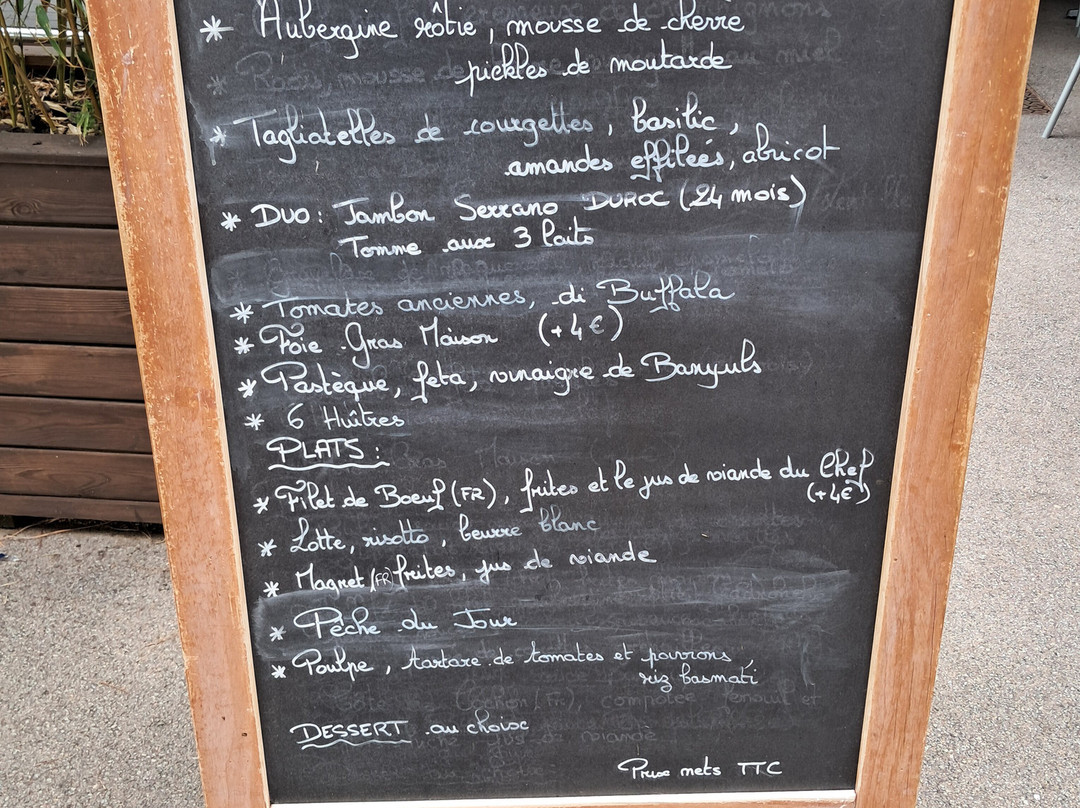 * Aubergine rôtie, mousse de chèvre
pickles de moutarde
* Tagliatelles de courgettes, basilic,
amandes effilées, abricot
* DUO : Jambon Serrano DUROC (24 mois)
Tomme aux 3 laits
* Tomates anciennes, di Buffala
* Foie Gras Maison (+4€)
* Pastèque, feta, vinaigre de Banyuls
* 6 Huîtres
PLATS :
* Filet de Boeuf (FR), frites et le jus de viande du Chef
(+4€)
* Lotte, risotto, beurre blanc
* Magret (FR) frites, jus de viande
* Pêche du Jour
* Poulpe, tartare de tomates et poivrons,
riz basmati
DESSERT au choix
Prix nets TTC